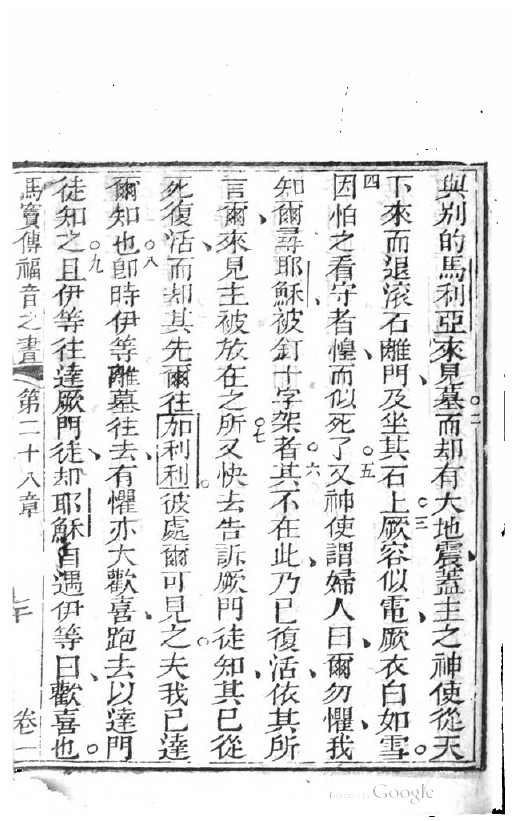 與別的馬利亞來見墓二而却有大地震蓋主之神使從天
下來而退滾石離門及坐其石上三厥容似電厥衣白如雪
四因怕之看守者惶而似死了五又神使謂婦人曰爾勿懼我
知爾尋耶穌被釘十字架者六其不在此乃已復活依其所
言爾來見主被放在之所七又快去告訴厥門徒知其已從
死復活而却其先爾往加利利彼處爾可見之夫我已達
爾知也八卽時伊等離墓往去有懼亦大歡喜跑去以達門
徒知之九且伊等往達厥門徒却耶穌自遇伊等曰歡喜也
馬竇傳福音之書 第二十八章 卷一
Digitized by Google